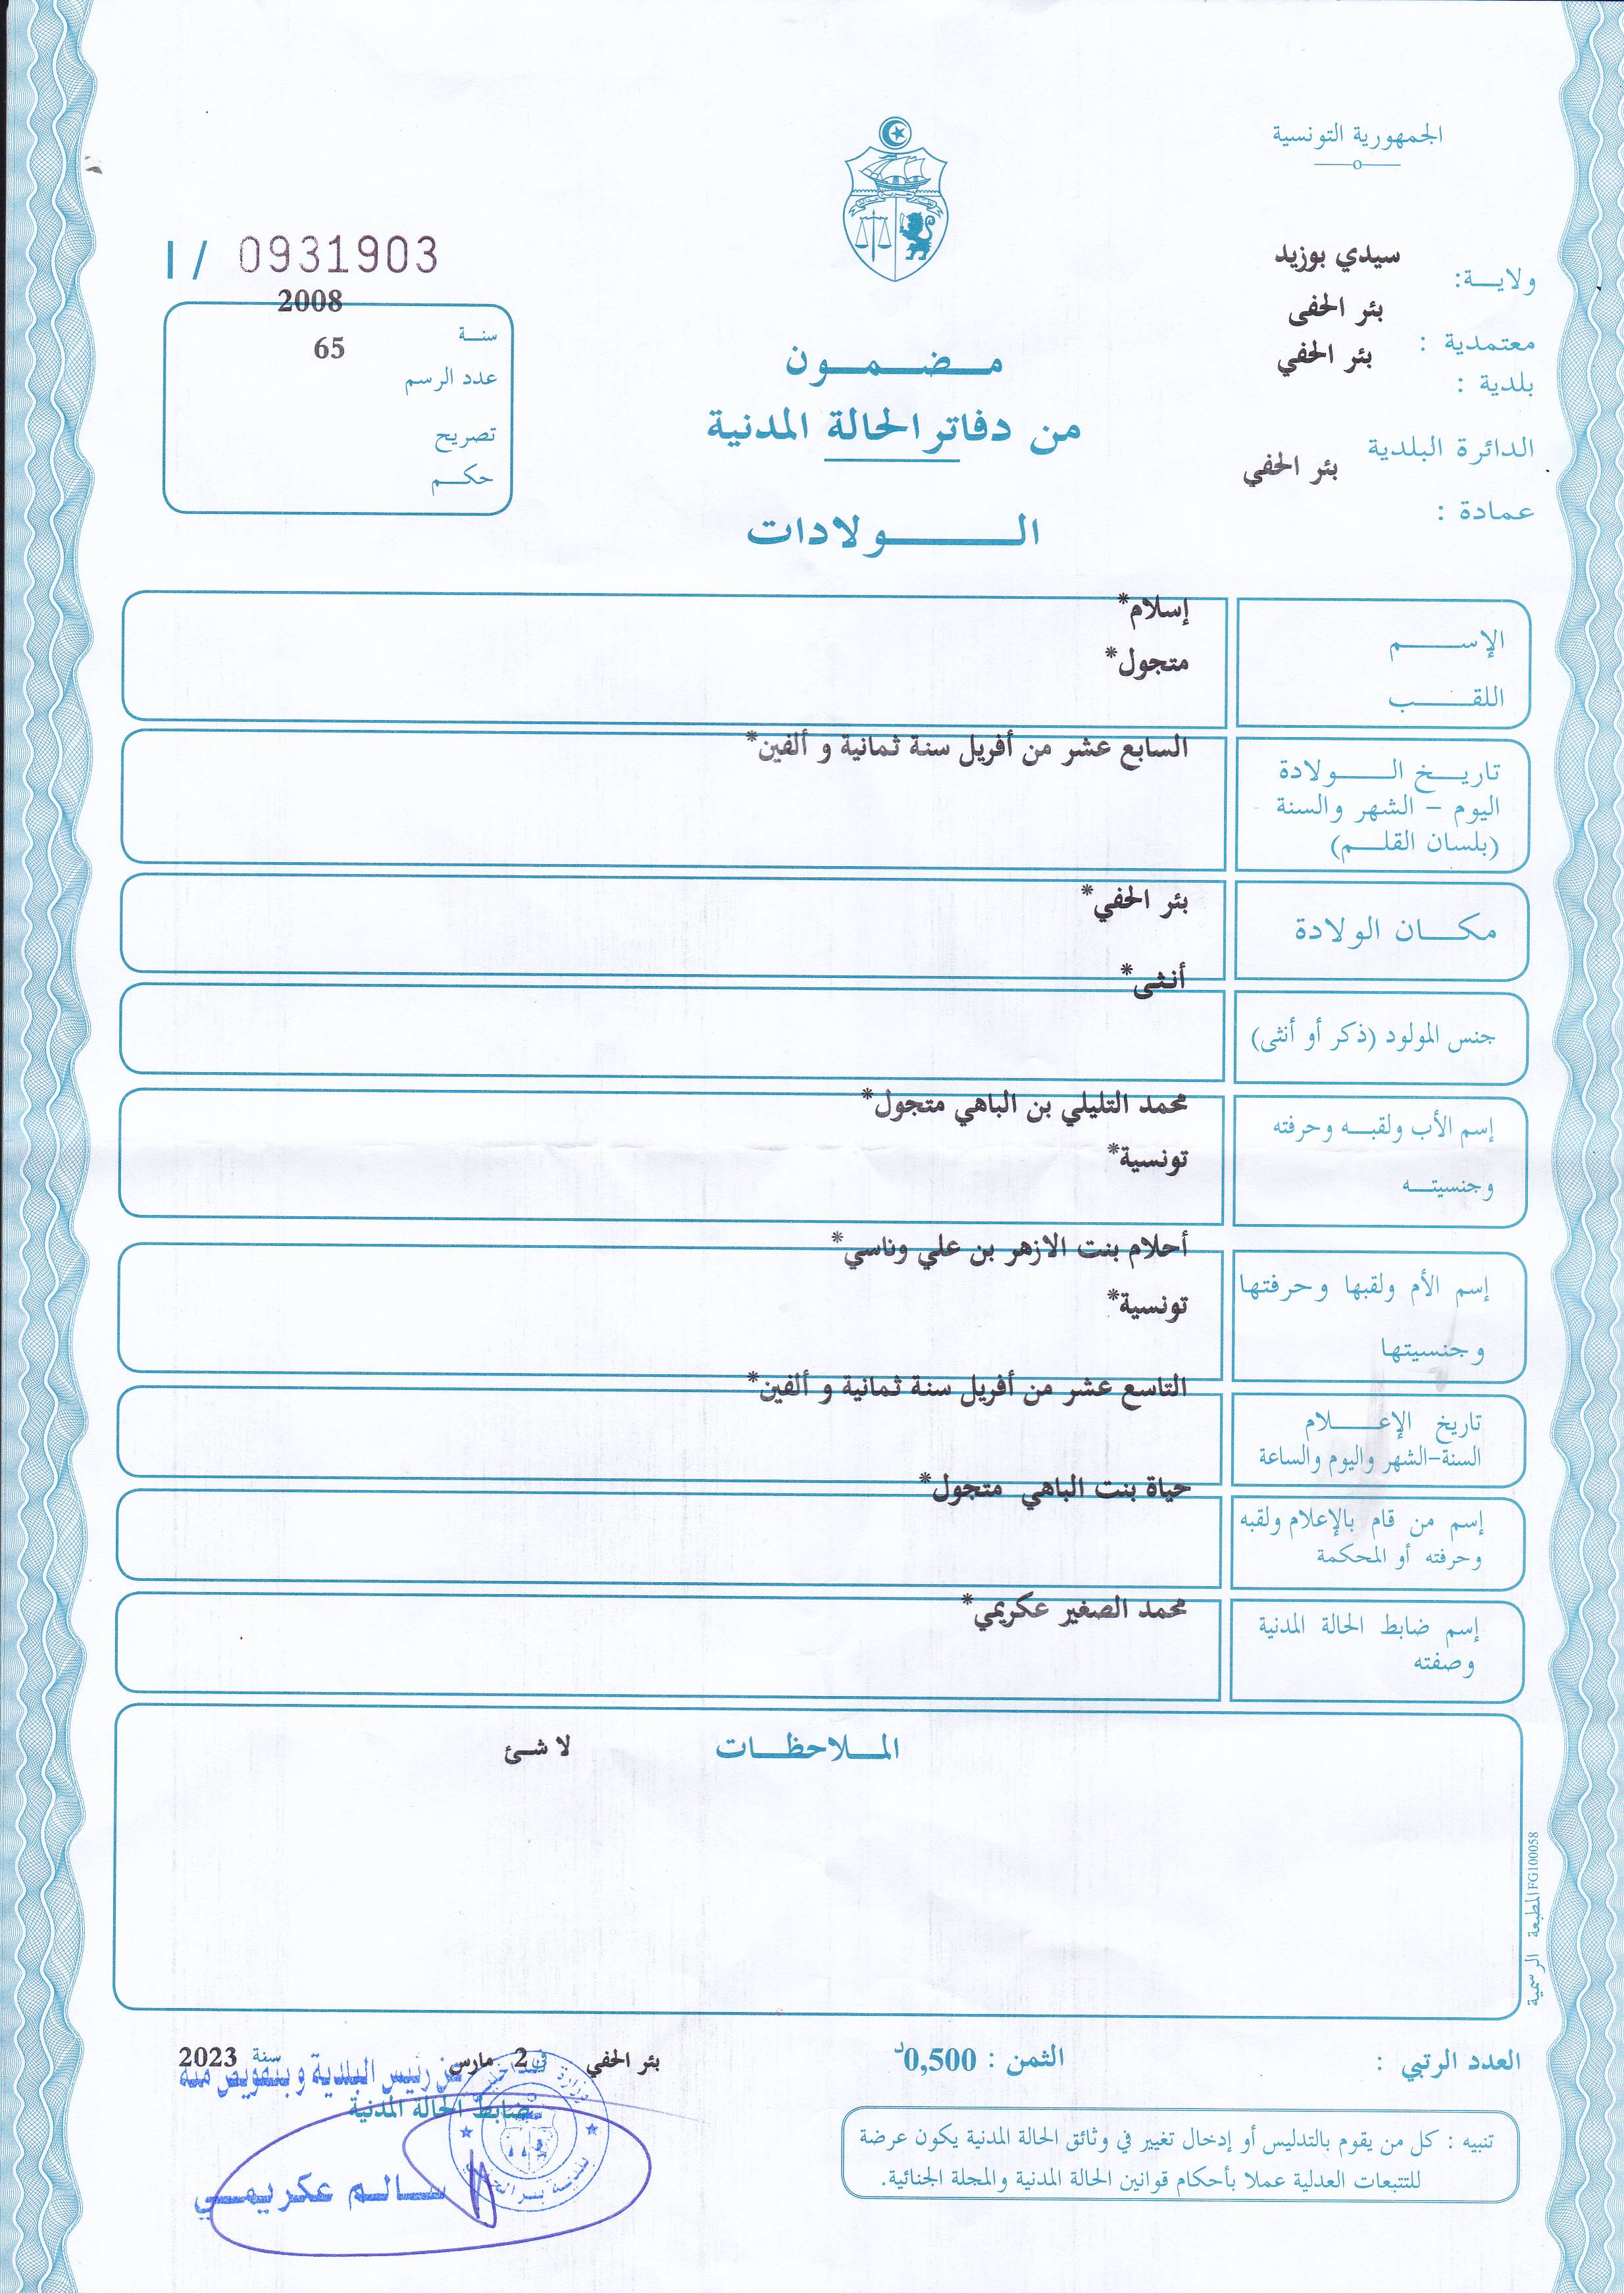 الجمهورية التونسية
ولايـــة: سيدي بوزيد
معتمدية : بئر الحفى
بلدية : بئر الحفي
الدائرة البلدية بئر الحفي
عمادة :
I / 0931903
سنـة 2008
عدد الرسم 65
تصريح
حكـم
مـضـمـون
من دفاتر الحالة المدنية
الـولادات
الإسـم إسلام*
اللقـب متجول*
تاريـخ الـولادة السابع عشر من أفريل سنة ثمانية و ألفين*
اليوم – الشهر والسنة
(بلسان القلـم)
مكـان الولادة بئر الحفي*
جنس المولود (ذكر أو أنثى) أنثى*
إسم الأب ولقبـه وحرفته محمد التليلي بن الباهي متجول*
وجنسيتـه تونسية*
إسم الأم ولقبها وحرفتها أحلام بنت الازهر بن علي وناسي*
وجنسيتها تونسية*
تاريخ الإعـلام التاسع عشر من أفريل سنة ثمانية و ألفين*
السنة-الشهر واليوم والساعة
إسم من قام بالإعلام ولقبه حياة بنت الباهي متجول*
وحرفته أو المحكمة
إسم ضابط الحالة المدنية محمد الصغير عكريمي*
وصفته
المـلاحظـات لا شئ
المطبعة الرسمية FG100058
العدد الرتبي :
الثمن : 0,500د
بئر الحفي في 2 مارس سنة 2023
عن رئيس البلدية وبتفويض منه
ضابط الحالة المدنية
سـالـم عكريمـي
تنبيه : كل من يقوم بالتدليس أو إدخال تغيير في وثائق الحالة المدنية يكون عرضة
للتتبعات العدلية عملا بأحكام قوانين الحالة المدنية والمجلة الجنائية.